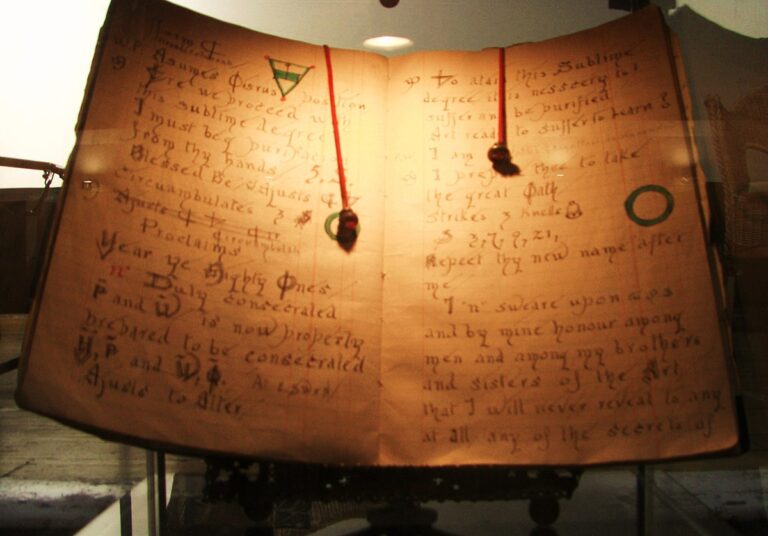 Asumes Osrus position
Ere! we proceed with
this sublime degree
I must be purified
from thy hands
Blessed Be Adjusts
circuambulates 3
Ajusts
circumambulates
Proclaims
Year ye Mighty Ones
"n" Duly consecrated
P and W is now properly
prepared to be consecrated
H, P and W,
Ajusts to Alter
To atain this Sublime
degree it is nesscery to
suffer and be purified
Art ready to suffer to Learn
I am
I thee to take
the great Oath
Strikes 3 Knells
3, 7, 9, 21,
Repect thy new name after
me
I "n" sweare upon
and by mine honour among
men and among my brothers
and sisters of the Art
that I will never reveal to any
at all any of the secrets of